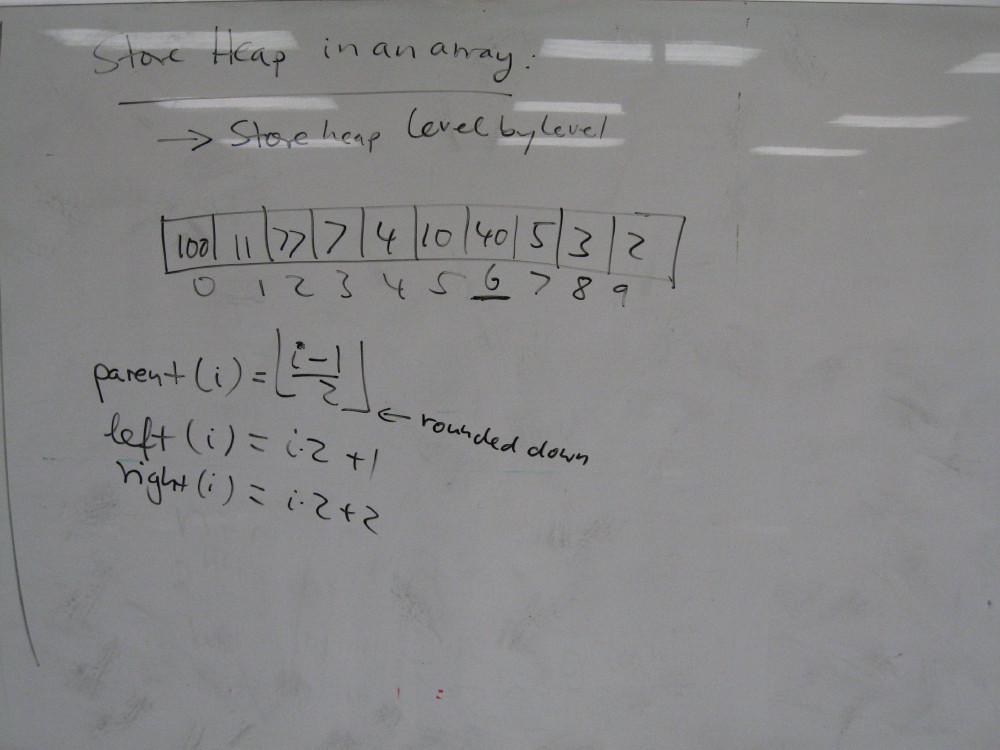 Store Heap in an array:
→ Store heap level by level
100 11 77 7 4 10 40 5 3 2
0 1 2 3 4 5 6 7 8 9
parent(i) = ⌊(i-1)/2⌋ ← rounded down
left(i) = i·2+1
right(i) = i·2+2